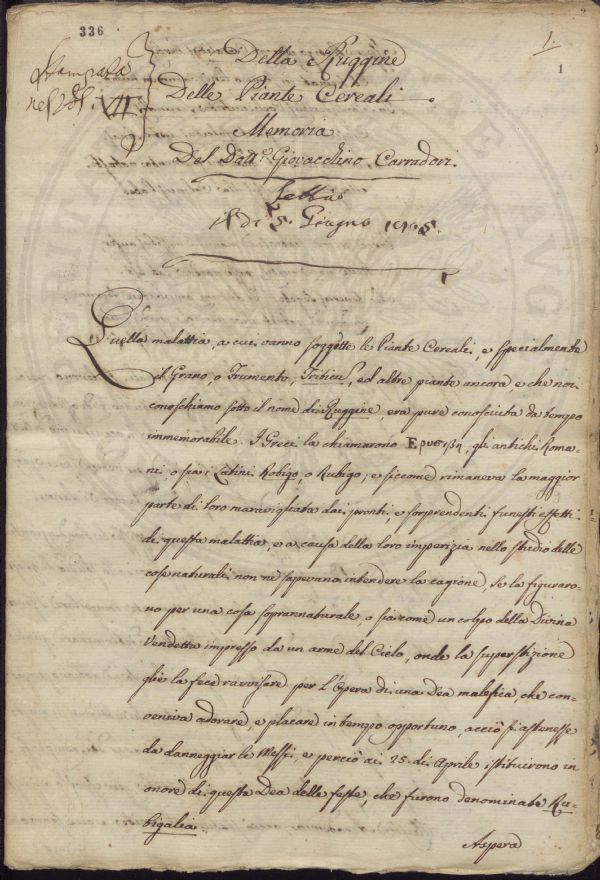 336
1
1
Stampata
nel
VII.
Della Ruggine
Delle Piante Cereali
Memoria
Del Dott.e Giovacchino Carradori.
Letta
di 5. Giugno
Quella malattia, a cui vanno soggette le Piante Cereali, e specialmente
il Grano, o Frumento, Triticum, ed altre piante ancora, e che noi
conoschiamo sotto il nome di Ruggine, era pure conosciuta da tempo
immemorabile. I Greci la chiamarono gli antichi Roma-
ni, o sia i Latini Robigo, o Rubigo; e siccome rimaneva la maggior
parte di loro maravigliata dai pronti, e sorprendenti funesti effetti
di questa malattia, e a causa della loro imperizia nello studio delle
cose naturali non ne sapevano intendere la cagione, se la figuraro-
no per una cosa soprannaturale, o sia come un colpo della Divina
Vendetta impresso da un arme del Cielo, onde la superstizione
glie la fece ravvisare per l'Opera di una Dea malefica che con-
veniva adorare, e placare in tempo opportuno, acciò si astenesse
da danneggiar le Messi, e perciò ai 25. di Aprile istituirono in
onore di questa Dea delle feste, che furono denominate Ru-
bigalia.
Aspera